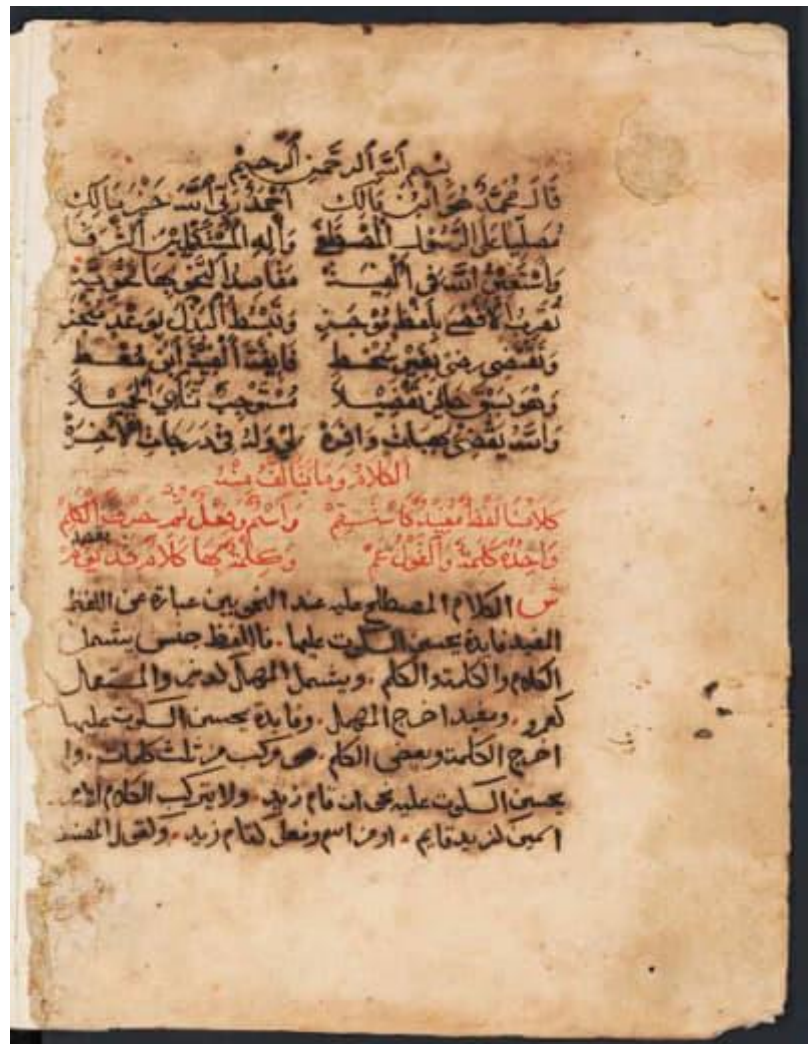 بسم الله الرحمن الرحيم
قَالَ مُحَمَّدٌ هُوَ ابْنُ مَالِكِ أَحْمَدُ رَبِّي اللَّهَ خَيْرَ مَالِكِ
مُصَلِّيًا عَلَى الرَّسُولِ الْمُصْطَفَى وَآلِهِ الْمُسْتَكْمِلِينَ الشَّرَفَا
وَأَسْتَعِينُ اللَّهَ فِي أَلْفِيَّهْ مَقَاصِدُ النَّحْوِ بِهَا مَحْوِيَّهْ
تُقَرِّبُ الْأَقْصَى بِلَفْظٍ مُوجَزِ وَتَبْسُطُ الْبَذْلَ بِوَعْدٍ مُنْجَزِ
وَتَقْتَضِي رِضًى بِغَيْرِ سُخْطِ فَائِقَةً أَلْفِيَّةَ ابْنِ مُعْطِ
وَهْوَ بِسَبْقٍ حَائِزٌ تَفْضِيلَا مُسْتَوْجِبٌ ثَنَائِيَ الْجَمِيلَا
وَاللَّهُ يَقْضِي بِهِبَاتٍ وَافِرَهْ لِي وَلَهُ فِي دَرَجَاتِ الْآخِرَهْ
الكلام وما يتألف منه
كَلَامُنَا لَفْظٌ مُفِيدٌ كَاسْتَقِمْ وَاسْمٌ وَفِعْلٌ ثُمَّ حَرْفٌ الْكَلِمْ
وَاحِدُهُ كَلِمَةٌ وَالْقَوْلُ عَمْ وَكِلْمَةٌ بِهَا كَلَامٌ قَدْ يُؤَمْ
ش الكلام المصطلح عليه عند النحويين عبارة عن اللفظ
المفيد فايدة يحسن السكوت عليها . فاللفظ جنس يشمل
الكلام والكلمة والكلم . ويشمل المهمل كديز والمستعمل
كعمرو . ومفيد اخرج المهمل . وفايدة يحسن السكوت عليها
اخرج الكلمة وبعض الكلم . مركب من ثلث كلمات . ولم
يحسن السكوت عليه نحو ان قام زيد . ولا يتركب الكلام الا من
اسمين كزيد قايم . او من اسم وفعل كقام زيد . وكقول المصنف